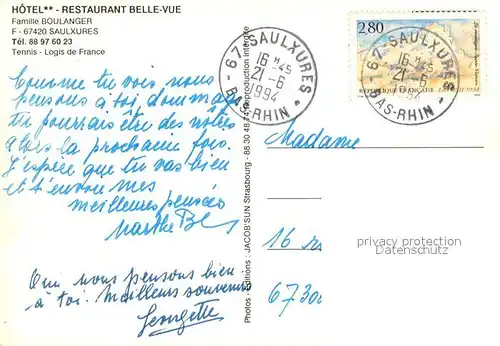 HÔTEL** - RESTAURANT BELLE-VUE
Famille BOULANGER
F - 67420 SAULXURES
Tél. 88 97 60 23
Tennis - Logis de France
Comme tu vois nous
pensons à toi, dommage
tu pourrais être des nôtres
alors la prochaine fois.
J'espère que tu vas bien
et t'envoie mes
meilleures pensées
Marthe
Oui nous pensons bien
à toi. Meilleurs souvenirs
Georgette
Photos - Editions : JACOB'SUN Strasbourg - 88 30 48 74 Reproduction interdite
67 - SAULXURES
16 H - 45
21 - 6
1994
BAS-RHIN *
2,80
67 - SAULXURES
16 H - 45
21 - 6
1994
BAS-RHIN *
Madame
16
6730
privacy protection
Datenschutz